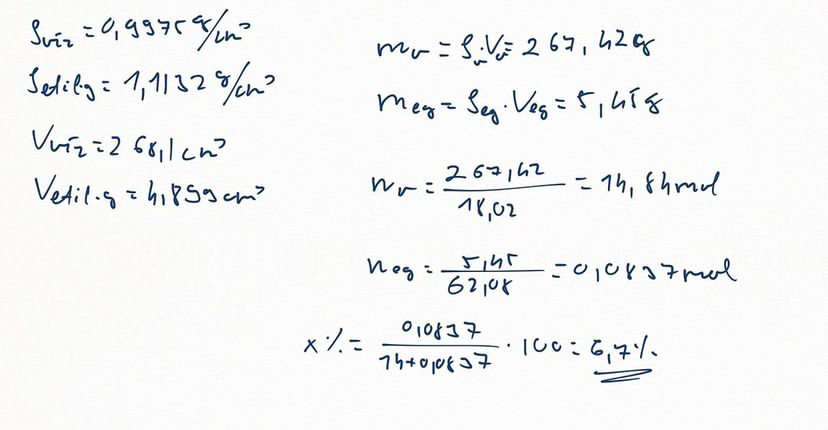 ρvíz = 0,9975 g/cm³
ρetil.g = 1,1132 g/cm³
Vvíz = 268,1 cm³
Vetil.g = 4,899 cm³
mv = ρv·Vv = 267,42g
meg = ρeg·Veg = 5,45g
nv = 267,42 / 18,02 = 14,84mol
neg = 5,45 / 62,08 = 0,0837mol
x% = 0,0837 / 14+0,0837 · 100 = 6,7%